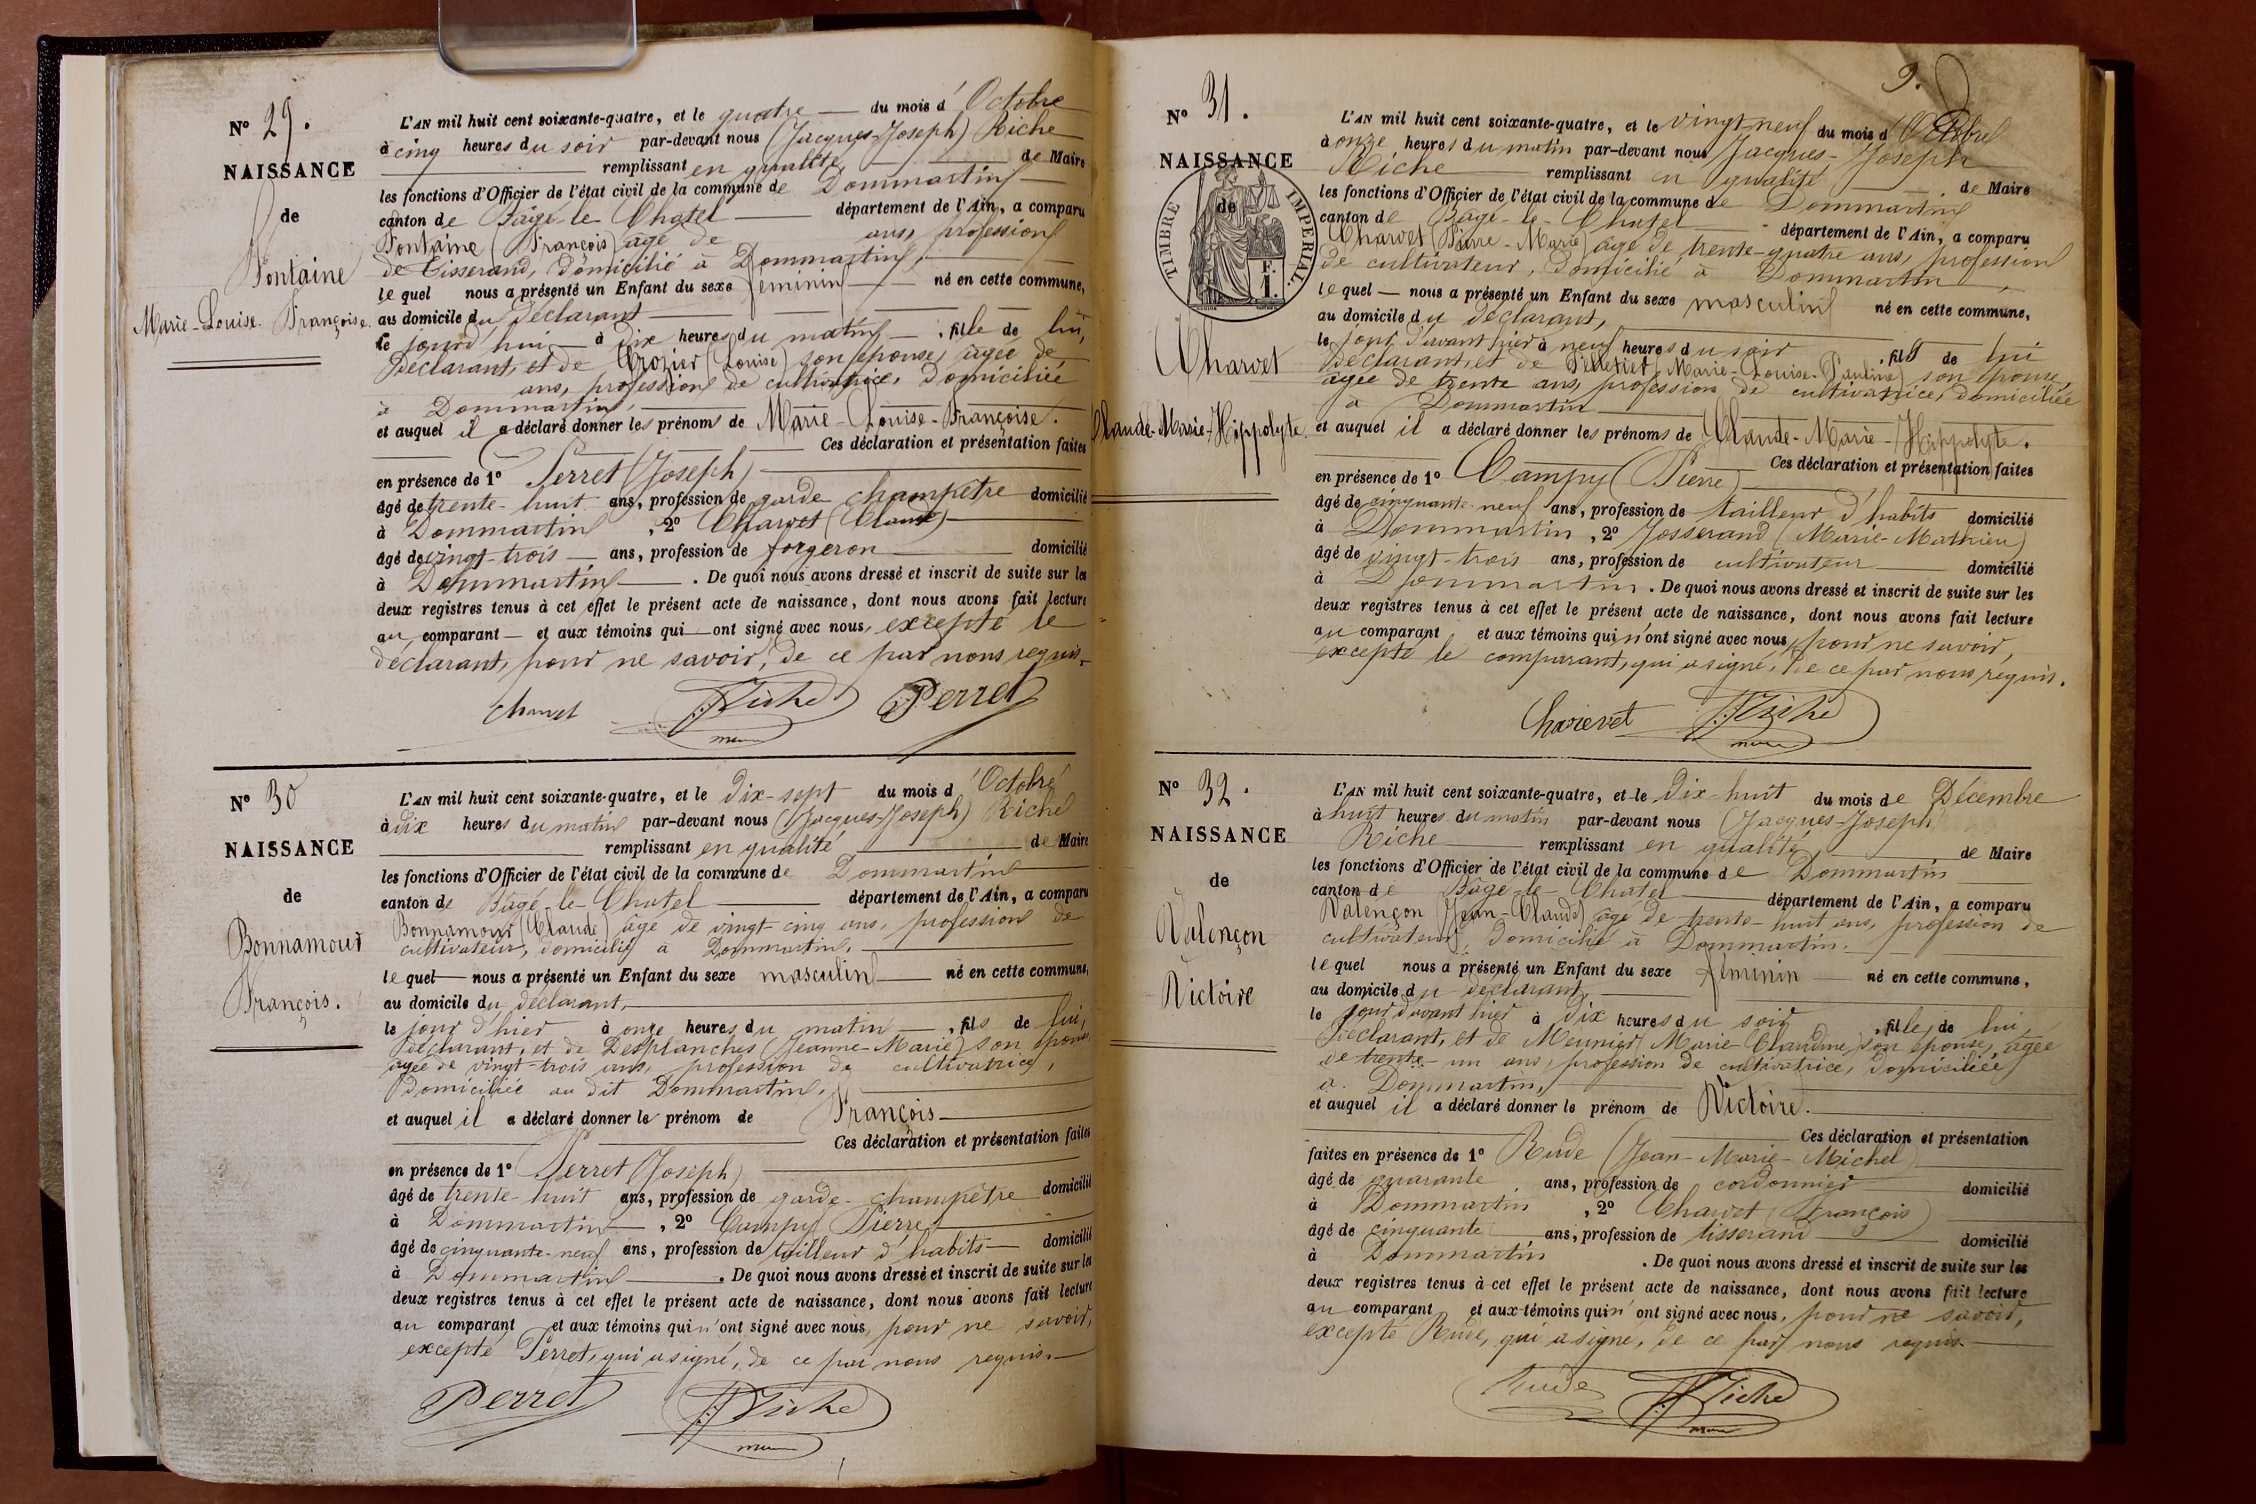 Nº 29.
NAISSANCE
de
Fontaine
Marie-Louise-Françoise.
L'AN mil huit cent soixante-quatre, et le quatre du mois d'Octobre
à cinq heures du soir par-devant nous (Jacques-Joseph) Riche
remplissant en qualité de Maire
les fonctions d'Officier de l'état civil de la commune de Dommartin
canton de Bâgé-le-Chatel département de l'Ain, a comparu
Fontaine (François) âgé de ans, profession
de Tisserand, domicilié à Dommartin,
lequel nous a présenté un Enfant du sexe féminin né en cette commune,
au domicile du déclarant
le jourd'hui à dix heures du matin, fille de lui,
Déclarant, et de Crozier (Louise) son épouse, âgée de
ans, profession de cultivatrice, domiciliée
à Dommartin,
et auquel il a déclaré donner les prénoms de Marie-Louise-Françoise.
Ces déclaration et présentation faites
en présence de 1º Perret (Joseph)
âgé de trente-huit ans, profession de garde champêtre domicilié
à Dommartin, 2º Charvet (Claude)
âgé de vingt-trois ans, profession de forgeron domicilié
à Dommartin. De quoi nous avons dressé et inscrit de suite sur les
deux registres tenus à cet effet le présent acte de naissance, dont nous avons fait lecture
au comparant et aux témoins qui ont signé avec nous, excepté le
déclarant, pour ne savoir, de ce par nous requis.
Charvet JJ Riche Perret
maire
Nº 30
NAISSANCE
de
Bonnamour
François.
L'AN mil huit cent soixante-quatre, et le dix-sept du mois d'Octobre
à dix heures du matin par-devant nous (Jacques-Joseph) Riche
remplissant en qualité de Maire
les fonctions d'Officier de l'état civil de la commune de Dommartin
canton de Bâgé-le-Chatel département de l'Ain, a comparu
Bonnamour (Claude) âgé de vingt-cinq ans, profession de
cultivateur, domicilié à Dommartin,
lequel nous a présenté un Enfant du sexe masculin né en cette commune,
au domicile du déclarant,
le jour d'hier à onze heures du matin, fils de lui,
déclarant, et de Desplanches (Jeanne-Marie) son épouse
âgée de vingt-trois ans, profession de cultivatrice,
domiciliée au dit Dommartin,
et auquel il a déclaré donner le prénom de François
Ces déclaration et présentation faites
en présence de 1º Perret (Joseph)
âgé de trente-huit ans, profession de garde-champêtre domicilié
à Dommartin, 2º Campy Pierre
âgé de cinquante-neuf ans, profession de tailleur d'habits domicilié
à Dommartin. De quoi nous avons dressé et inscrit de suite sur les
deux registres tenus à cet effet le présent acte de naissance, dont nous avons fait lecture
au comparant et aux témoins qui n'ont signé avec nous, pour ne savoir,
excepté Perret, qui a signé, de ce par nous requis.
Perret JJ Riche
maire
9.
Nº 31.
NAISSANCE
de
TIMBRE IMPERIAL.
F. 1.
Charvet
Claude-Marie-Hippolyte.
L'AN mil huit cent soixante-quatre, et le vingt-neuf du mois d'Octobre
à onze heures du matin par-devant nous Jacques-Joseph
Riche remplissant en qualité de Maire
les fonctions d'Officier de l'état civil de la commune de Dommartin
canton de Bâgé-le-Chatel département de l'Ain, a comparu
Charvet (Pierre-Marie) âgé de trente-quatre ans, profession
de cultivateur, domicilié à Dommartin,
lequel nous a présenté un Enfant du sexe masculin né en cette commune,
au domicile du déclarant,
le jour d'avant hier à neuf heures du soir, fils de lui
déclarant, et de Pelletier (Marie-Louise-Pauline) son épouse,
âgée de trente ans, profession de cultivatrice, domiciliée
à Dommartin
et auquel il a déclaré donner les prénoms de Claude-Marie-Hippolyte.
Ces déclaration et présentation faites
en présence de 1º Campy (Pierre)
âgé de cinquante-neuf ans, profession de tailleur d'habits domicilié
à Dommartin, 2º Josserand (Marie-Mathieu)
âgé de vingt-trois ans, profession de cultivateur domicilié
à Dommartin. De quoi nous avons dressé et inscrit de suite sur les
deux registres tenus à cet effet le présent acte de naissance, dont nous avons fait lecture
au comparant et aux témoins qui n'ont signé avec nous, pour ne savoir,
excepté le comparant, qui a signé, de ce par nous requis.
Charvet JJ Riche
maire
Nº 32.
NAISSANCE
de
Valençon
Victoire
L'AN mil huit cent soixante-quatre, et le Dix-huit du mois de Décembre
à huit heures du matin par-devant nous (Jacques-Joseph
Riche remplissant en qualité, de Maire
les fonctions d'Officier de l'état civil de la commune de Dommartin
canton de Bâgé-le-Chatel département de l'Ain, a comparu
Valençon (Jean-Claude) âgé de trente-huit ans, profession de
cultivateur, domicilié à Dommartin,
lequel nous a présenté un Enfant du sexe féminin né en cette commune,
au domicile du déclarant,
le jour d'avant hier à dix heures du soir, fille de lui,
déclarant, et de Meunier (Marie-Claudine) son épouse, âgée
de trente-un ans, profession de cultivatrice, domiciliée
à Dommartin,
et auquel il a déclaré donner le prénom de Victoire.
Ces déclaration et présentation
faites en présence de 1º Rude (Jean-Marie-Michel)
âgé de quarante ans, profession de cordonnier domicilié
à Dommartin, 2º Charvet (François)
âgé de cinquante ans, profession de tisserand domicilié
à Dommartin. De quoi nous avons dressé et inscrit de suite sur les
deux registres tenus à cet effet le présent acte de naissance, dont nous avons fait lecture
au comparant et aux témoins qui n'ont signé avec nous, pour ne savoir,
excepté Rude, qui a signé, de ce par nous requis.
Rude JJ Riche
maire